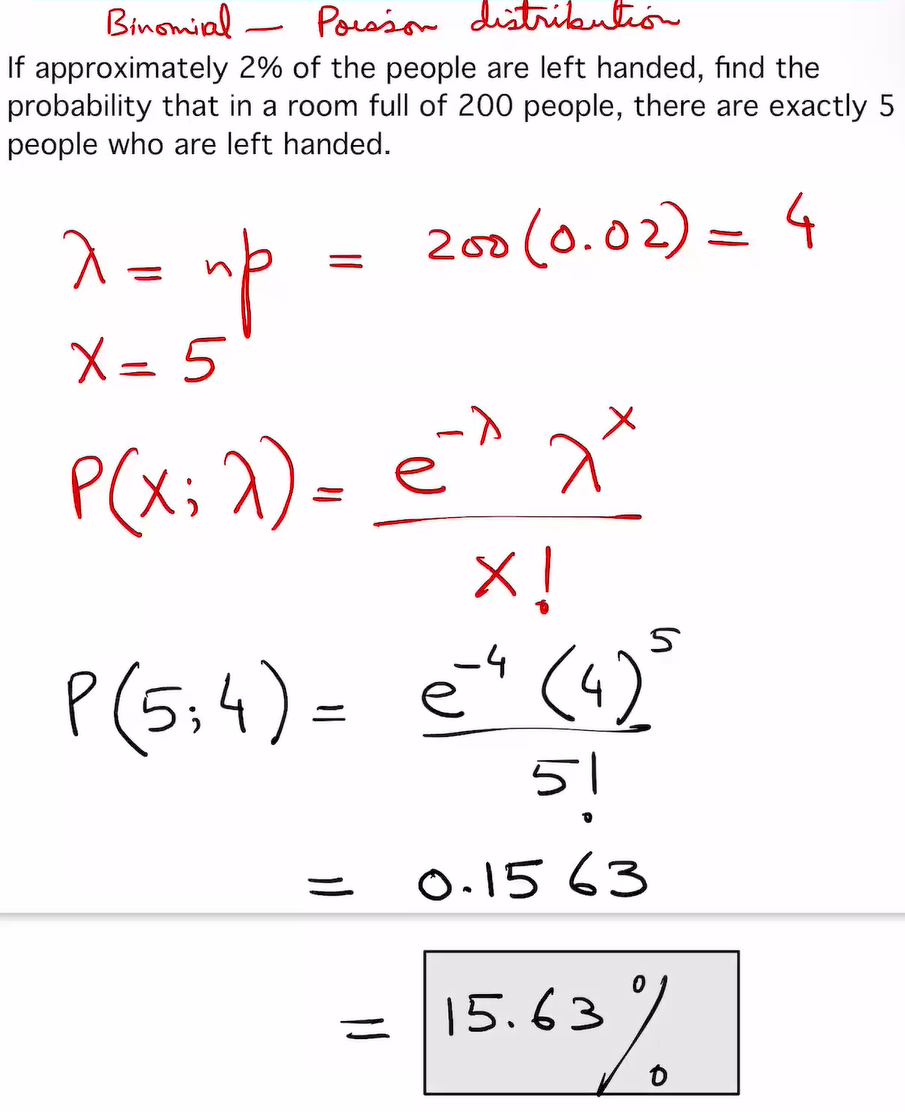 Binomial – Poisson distribution
If approximately 2% of the people are left handed, find the
probability that in a room full of 200 people, there are exactly 5
people who are left handed.
λ = np = 200(0.02) = 4
X = 5
P(X; λ) = e^{-λ} λ^x / x!
P(5;4) = e^{-4} (4)^5 / 5!
= 0.1563
= 15.63%